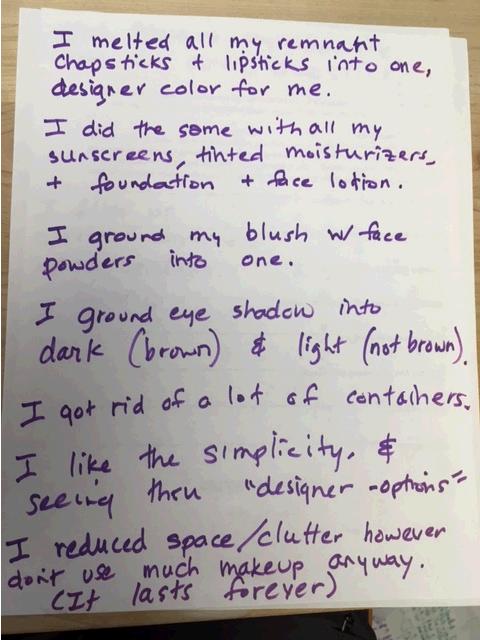 I melted all my remnant
chapsticks + lipsticks into one,
designer color for me.
I did the same with all my
sunscreens, tinted moisturizers,
+ foundation + face lotion.
I ground my blush w/ face
powders into one.
I ground eye shadow into
dark (brown) & light (not brown).
I got rid of a lot of containers.
I like the simplicity, &
seeing thru "designer-options"
I reduced space/clutter however
don't use much makeup anyway.
(It lasts forever)